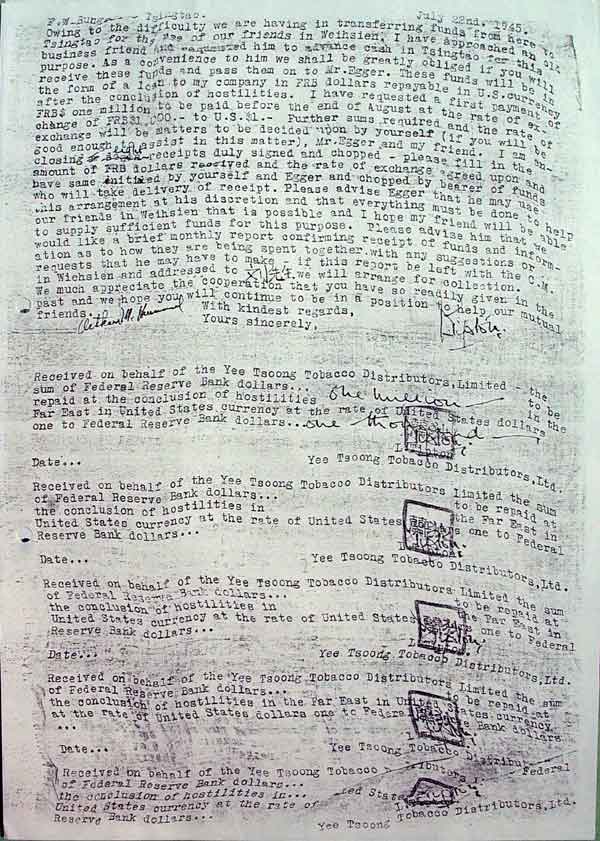 F.W.Bung Tsingtao. July 22nd. 1945.
Owing to the difficulty we are having in transferring funds from here to
Tsingtao for the use of our friends in Weihsien, I have approached an old
business friend and requested him to advance cash in Tsingtao for this
purpose. As a convenience to him we shall be greatly obliged if you will
receive these funds and pass them on to Mr.Egger. These funds will be in
the form of a loan to my company in FRB dollars repayable in U.S.currency
after the conclusion of hostilities. I have requested a first payment of
FRB$ one million to be paid before the end of August at the rate of ex-
change of FRB$1,000.- to U.S.$1.- Further sums required and the rate of
exchange will be matters to be decided upon by yourself (if you will be
good enough to assist in this matter), Mr.Egger and my friend. I am en-
closing receipts duly signed and chopped - please fill in the
amount of FRB dollars received and the rate of exchange agreed upon and
have same initialed by yourself and Egger and chopped by bearer of funds
who will take delivery of receipt. Please advise Egger that he may use
this arrangement at his discretion and that everything must be done to help
our friends in Weihsien that is possible and I hope my friend will be able
to supply sufficient funds for this purpose. Please advise him that we
would like a brief monthly report confirming receipt of funds and inform-
ation as to how they are being spent together with any suggestions or
requests that he may have to make - if this report be left with the C.M.
in Wiehsien and addressed to 先生 we will arrange for collection.
We much appreciate the cooperation that you have so readily given in the
past and we hope you will continue to be in a position to help our mutual
friends.
With kindest regards,
Yours sincerely,
Received on behalf of the Yee Tsoong Tobacco Distributors,Limited - the
sum of Federal Reserve Bank dollars... one million to be
repaid at the conclusion of hostilities in the
Far East in United States currency at the rate of United States dollars
one to Federal Reserve Bank dollars... one thousand
Date... Yee Tsoong Tobacco Distributors,Ltd.
Received on behalf of the Yee Tsoong Tobacco Distributors Limited the sum
of Federal Reserve Bank dollars... to be repaid at
the conclusion of hostilities in the Far East in
United States currency at the rate of United States one to Federal
Reserve Bank dollars...
Date... Yee Tsoong Tobacco Distributors,Ltd.
Received on behalf of the Yee Tsoong Tobacco Distributors Limited the sum
of Federal Reserve Bank dollars... to be repaid at
the conclusion of hostilities in the Far East in
United States currency at the rate of United States one to Federal
Reserve Bank dollars...
Date... Yee Tsoong Tobacco Distributors,Ltd.
Received on behalf of the Yee Tsoong Tobacco Distributors Limited the sum
of Federal Reserve Bank dollars... to be repaid at
the conclusion of hostilities in the Far East in United States currency
at the rate of United States dollars one to Federal Bank dollars
...
Date... Yee Tsoong Tobacco
Received on behalf of the Yee Tsoong Tobacco Federal
of Federal Reserve Bank dollars...
the conclusion of hostilities in...
United States currency at the rate of
Reserve Bank dollars... Yee Tsoong Tobacco Distributors,Ltd.